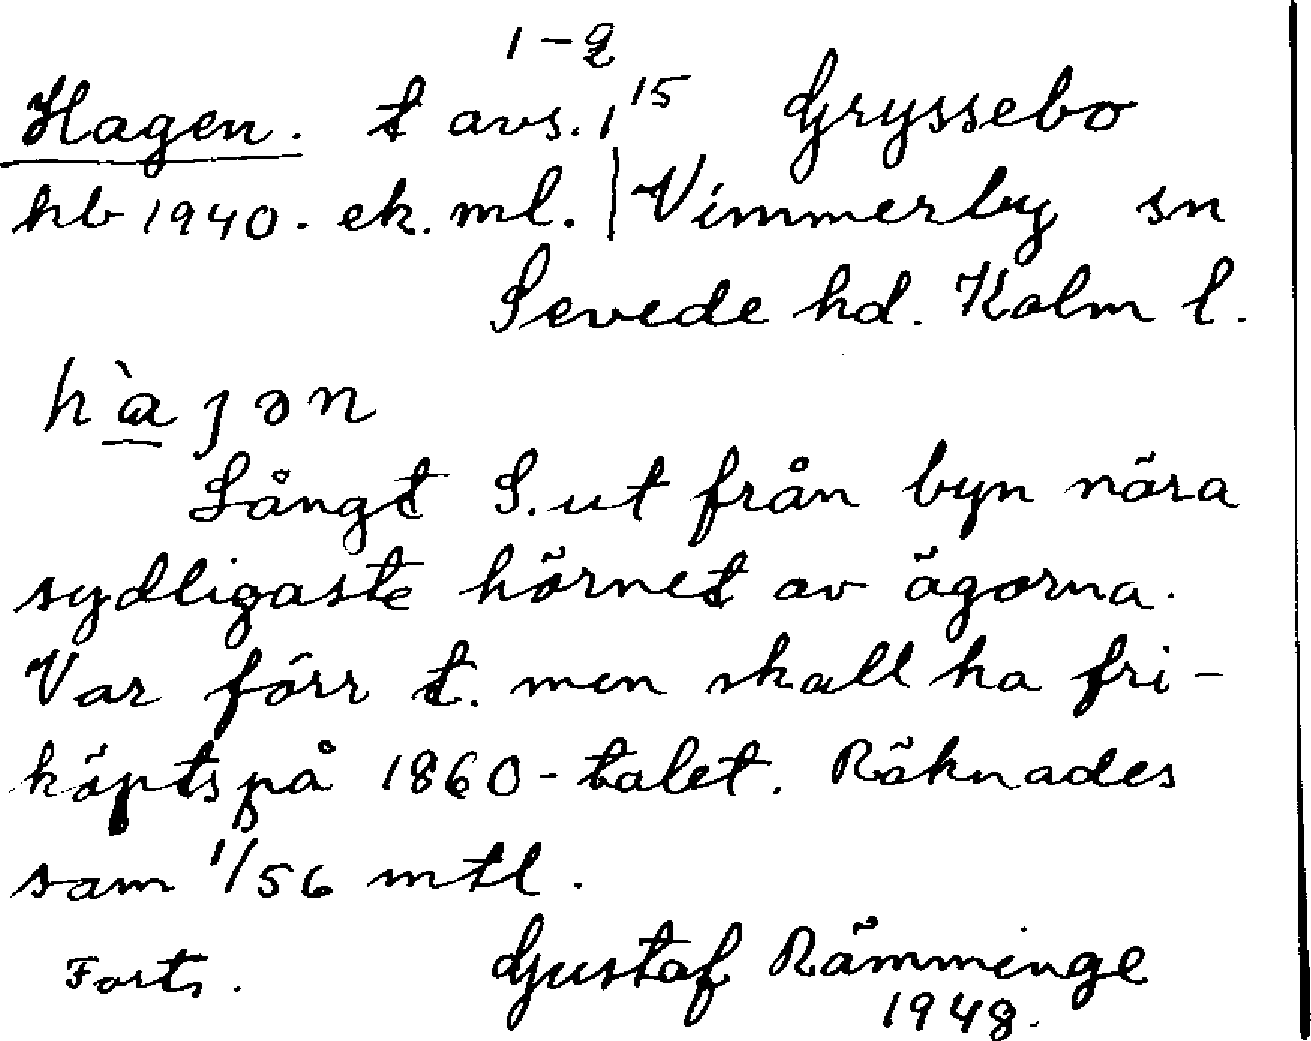 1-2
Hagen. t avs. 1 15 Gryssebo
hb 1940. ek. ml. | Vimmerby sn
Sevede hd. Kalm l.
hàȷən
Långt S. ut från byn nära
sydligaste hörnet av ägorna.
Var förr t. men skall ha fri-
köpts på 1860-talet. Räknades
som 1/56 mtl.
Forts. Gustaf Rämminge
1948.